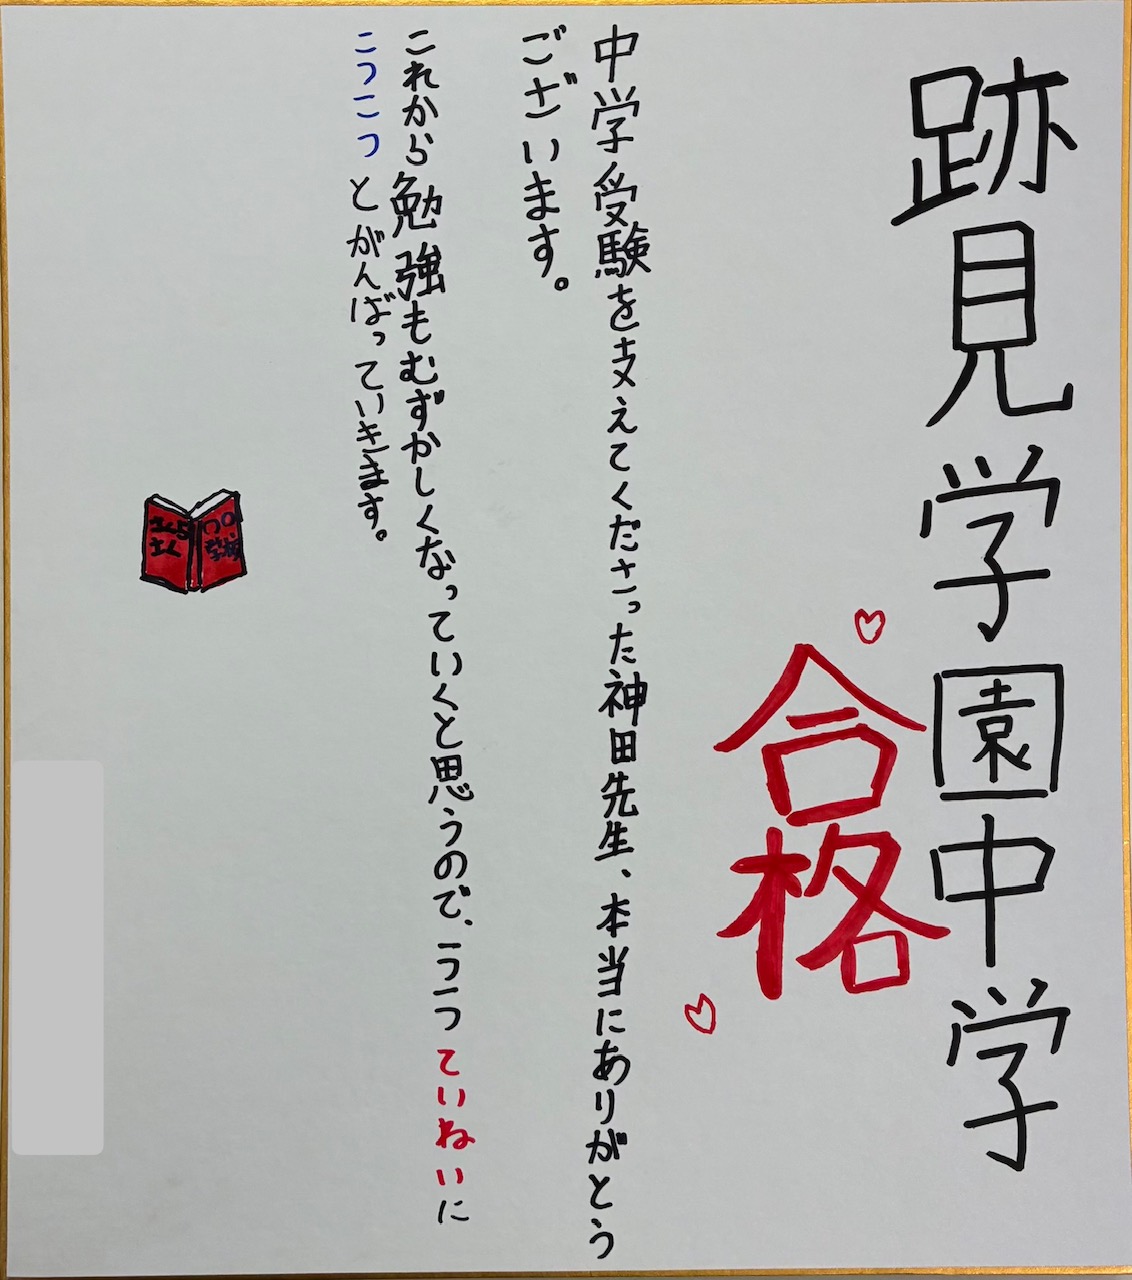 跡見学園中学
合格
中学受験を支えてくださった神田先生、本当にありがとう
ございます。
これから勉強もむずかしくなっていくと思うので、一つ一つていねいに
こつこつとがんばっていきます。